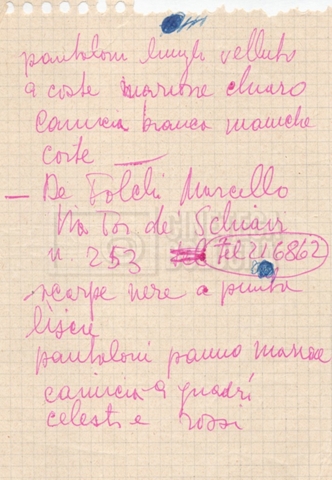 pantaloni lunghi velluto
a coste marrone chiaro
camicia bianca maniche
corte —
— De Folchi Marcello
Via Tor de Schiavi
n. 253 Tel 216862
- scarpe nere a punta
liscie
pantaloni panno marrone
camicia a quadri
celesti e rossi